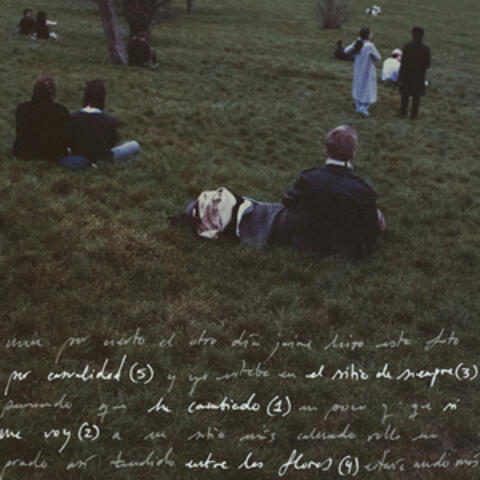 mira por cierto el otro día jaime hizo esta foto
por casualidad (5) y yo estaba en el sitio de siempre (3)
pensando que ha cambiado (1) un poco y que si
me voy (2) a un sitio más calmado rollo un
prado así tendido entre las flores (4) estaría mucho más